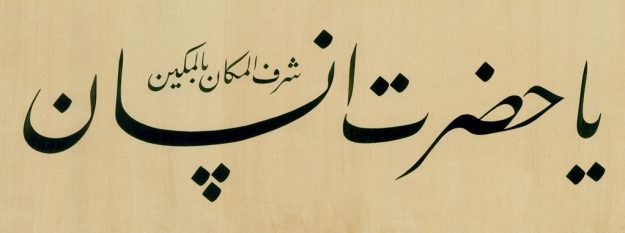 یا حضرت انسان
شرف المکان بالمکین